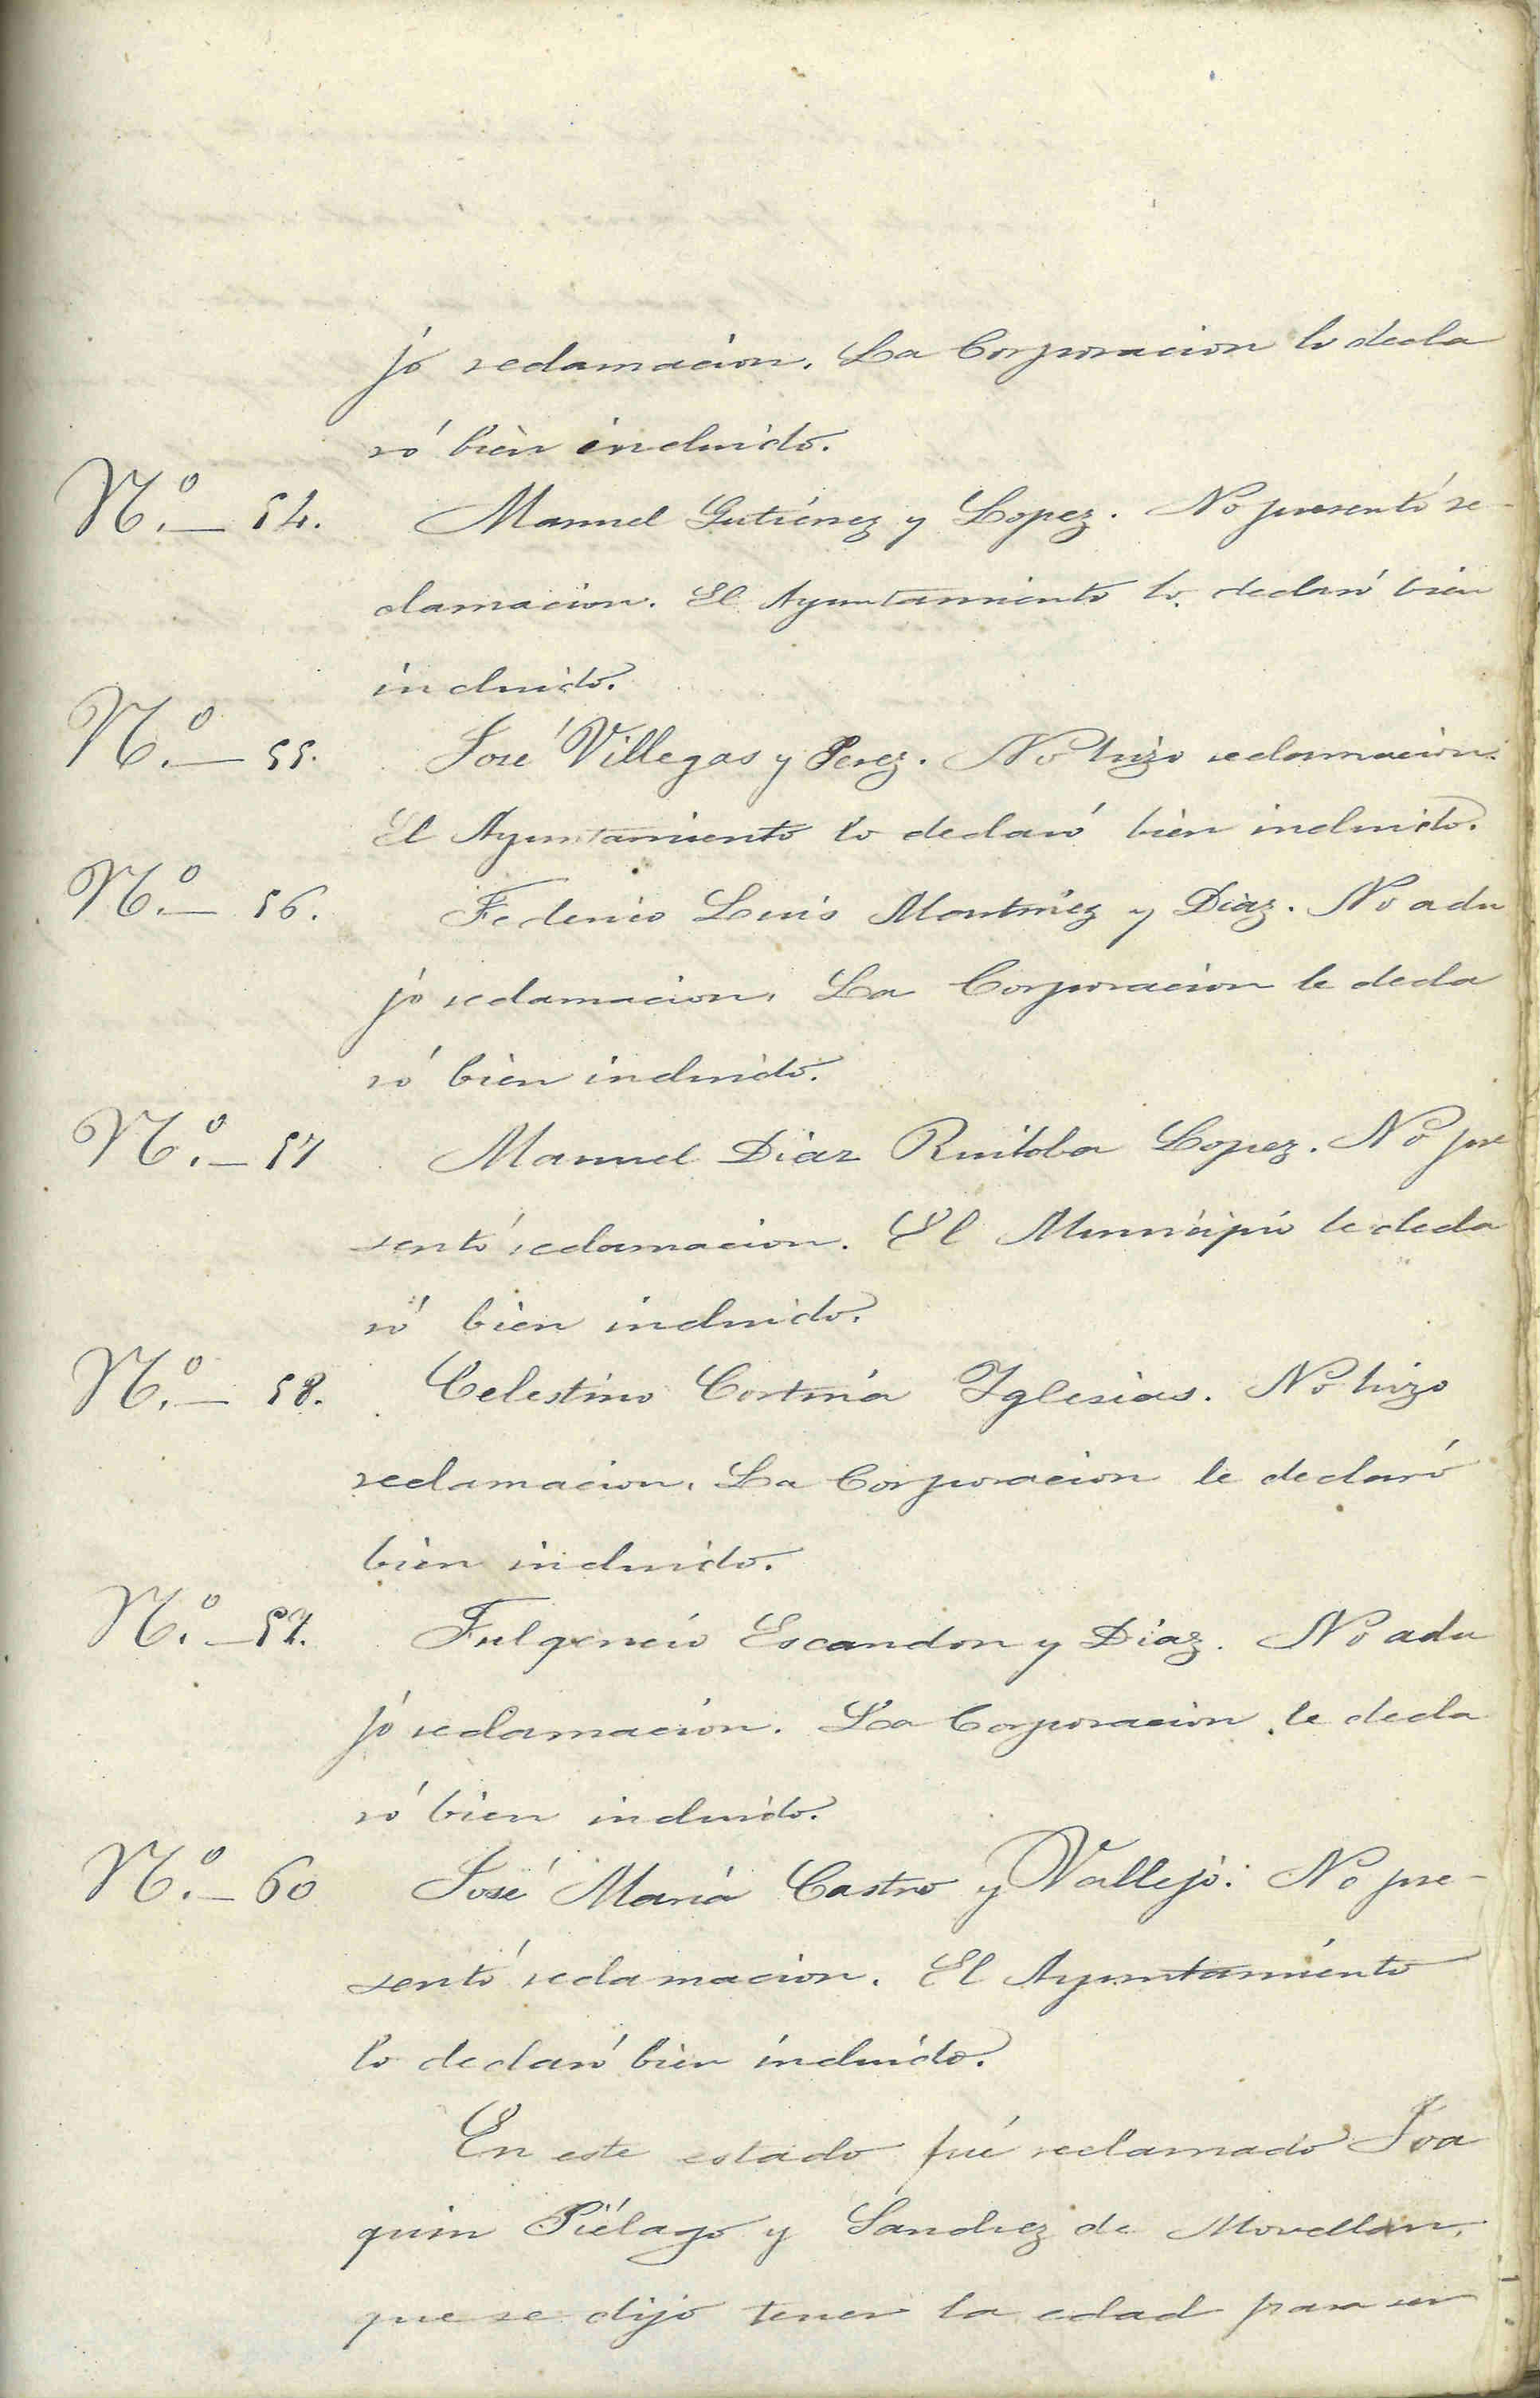 jo reclamacion. La Corporacion lo decla
ró bien incluido.
N.º — 54. Manuel Gutiérrez y Lopez. No presentó re-
clamacion. El Ayuntamiento lo declaró bien
incluido.
N.º — 55. José Villegas y Perez. No hizo reclamacion.
El Ayuntamiento lo declaró bien incluido.
N.º — 56. Federico Luis Montinez y Diaz. No adu
jo reclamacion. La Corporacion le decla
ró bien incluido.
N.º — 57 Manuel Diaz Ruiloba Lopez. No pre
sentó reclamacion. El Municipio le decla
ró bien incluido.
N.º — 58. Celestino Cortina Iglesias. No hizo
reclamacion. La Corporacion le declaró
bien incluido.
N.º — 59. Fulgencio Escandon y Diaz. No adu
jo reclamacion. La Corporacion le decla
ró bien incluido.
N.º — 60 José Maria Castro y Vallejo. No pre-
sentó reclamacion. El Ayuntamiento
lo declaró bien incluido.
En este estado fué reclamado Joa
quin Piélago y Sanchez de Movellan,
que se dijo tener la edad para ser